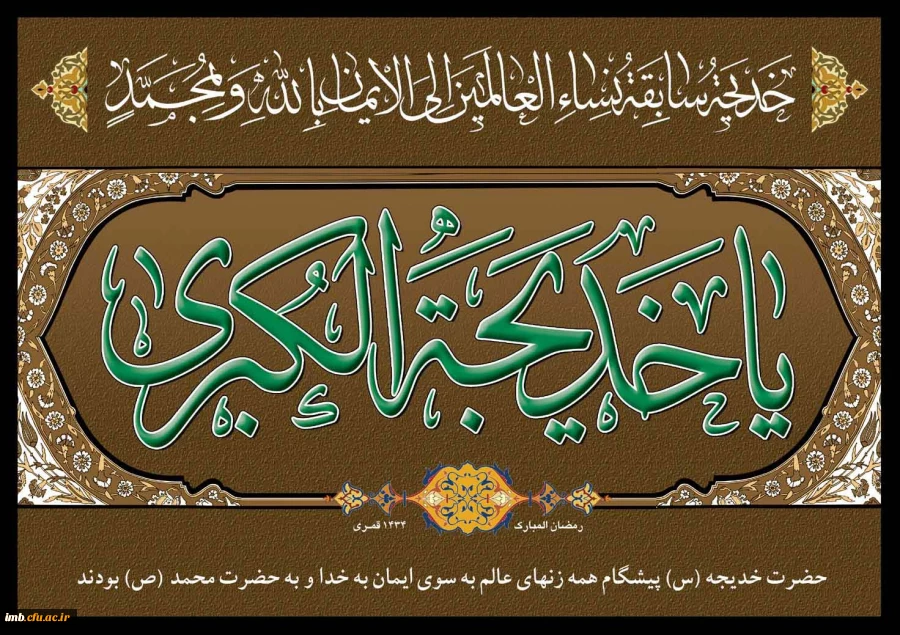 خَدیجَةُ سابِقَةُ نِساءِ العالَمینَ اِلَی الایمانِ بِاللهِ وَ بِمُحَمَّدٍ
یا خَدیجَةُ الکُبری
رمضان المبارک
۱۴۳۴ قمری
حضرت خدیجه (س) پیشگام همه زنهای عالم به سوی ایمان به خدا و به حضرت محمد (ص) بودند
imb.cfu.ac.ir